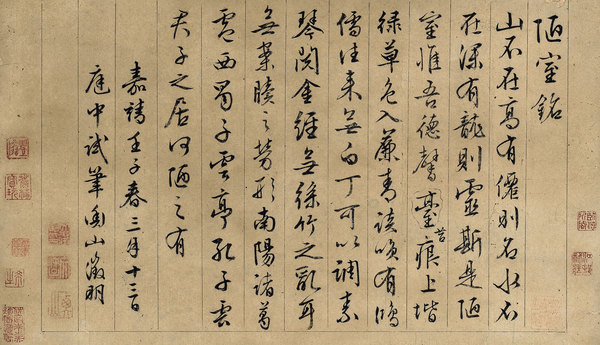 陋室銘
山不在高有僊則名水不
在深有龍則靈斯是陋
室惟吾德馨臺痕上堦
苔
綠草色入簾青談咲有鴻
儒往來無白丁可以調素
琴閱金經無絲竹之亂耳
無案牘之勞形南陽諸葛
廬西蜀子雲亭孔子云
夫子之居何陋之有
嘉靖壬子春三月十三日
庭中試筆山徵明